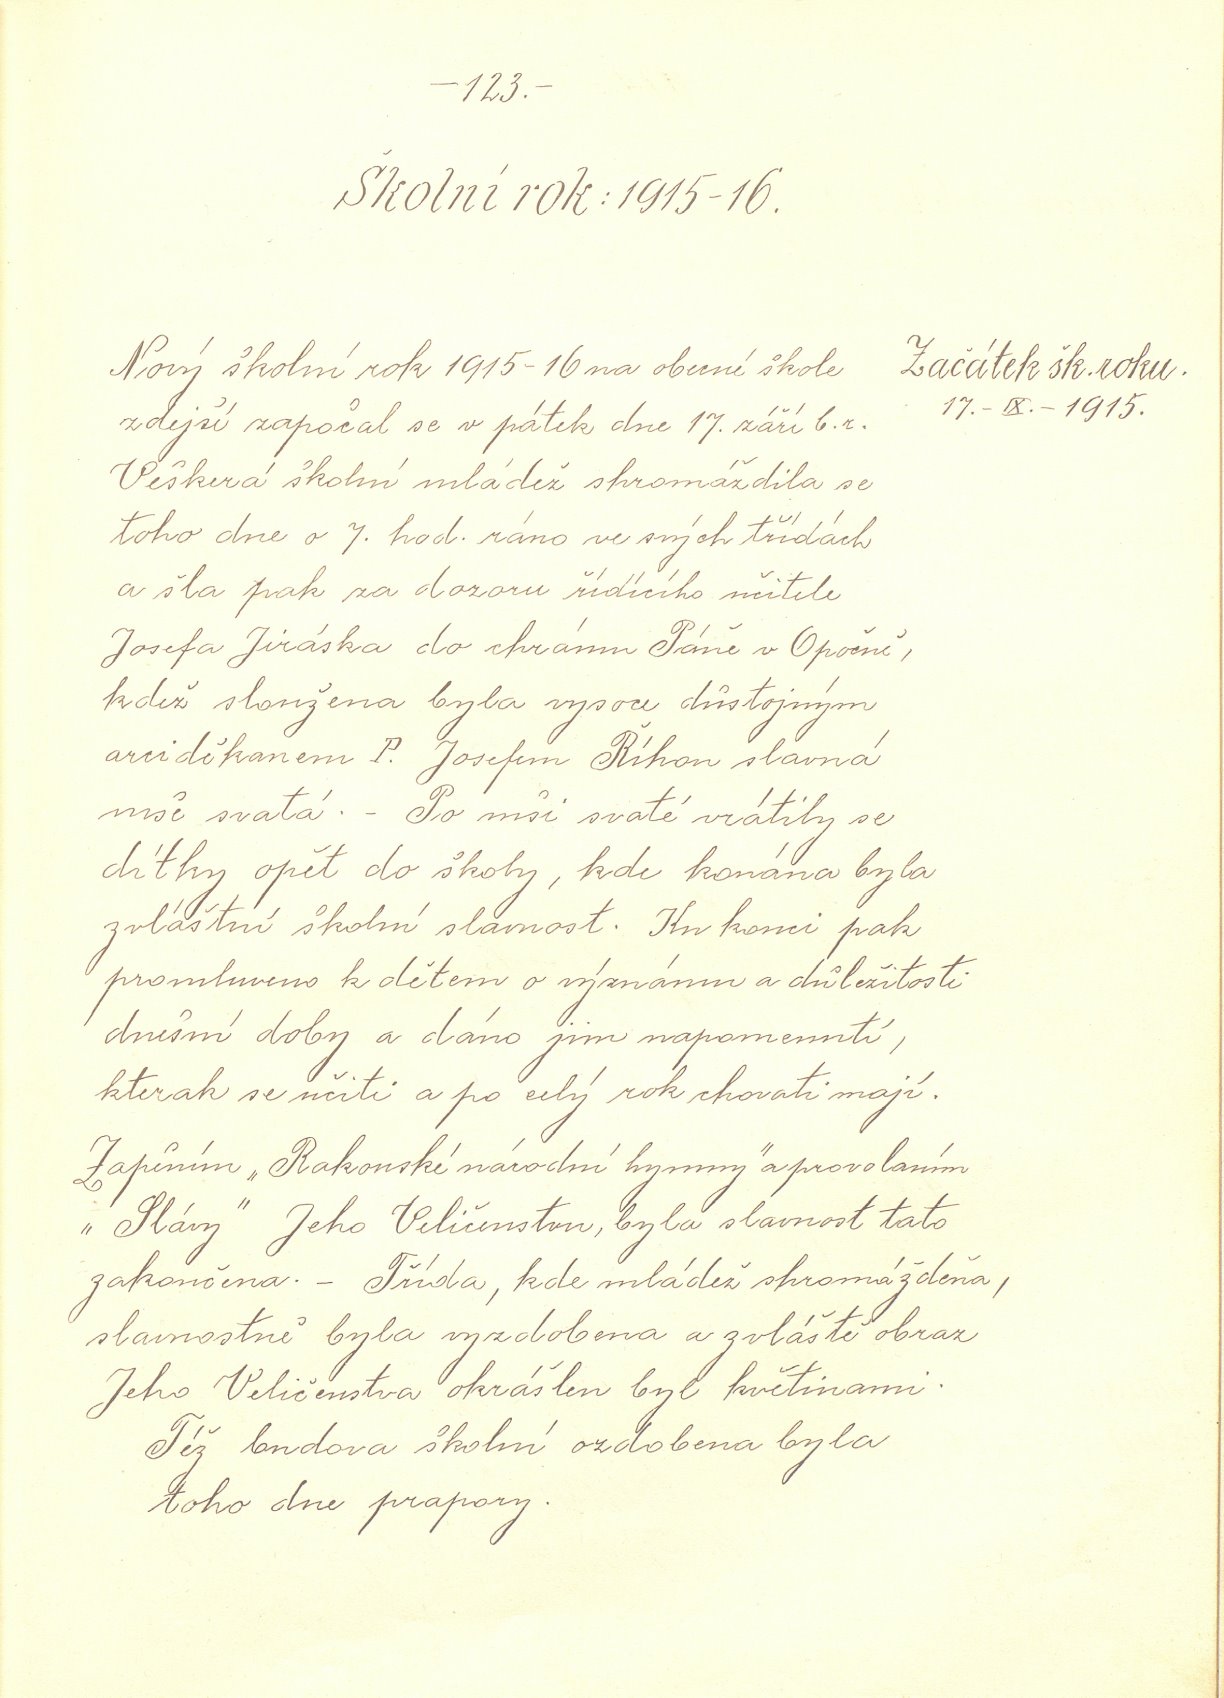 – 123. –
Školní rok: 1915-16.
Nový školní rok 1915-16 na obecné škole
Začátek šk. roku.
17. - IX. - 1915.
zdejší započal se v pátek dne 17. září b. r.
Veškerá školní mládež shromáždila se
toho dne o 7. hod. ráno ve svých třídách
a šla pak za dozoru řídícího učitele
Josefa Jiráska do chrámu Páně v Opočně,
kdež sloužena byla vysoce důstojným
arciděkanem P. Josefem Říhou slavná
mše svatá. - Po mši svaté vrátily se
dítky opět do školy, kde konána byla
zvláštní školní slavnost. Ku konci pak
promluveno k dětem o významu a důležitosti
dnešní doby a dáno jim napomenutí,
kterak se učiti a po celý rok chovati mají.
Zapěním „Rakouské národní hymny" a provoláním
„Slávy" Jeho Veličenstvu, byla slavnost tato
zakončena. - Třída, kde mládež shromážděna,
slavnostně byla vyzdobena a zvláště obraz
Jeho Veličenstva okrášlen byl květinami.
Též budova školní ozdobena byla
toho dne prapory.